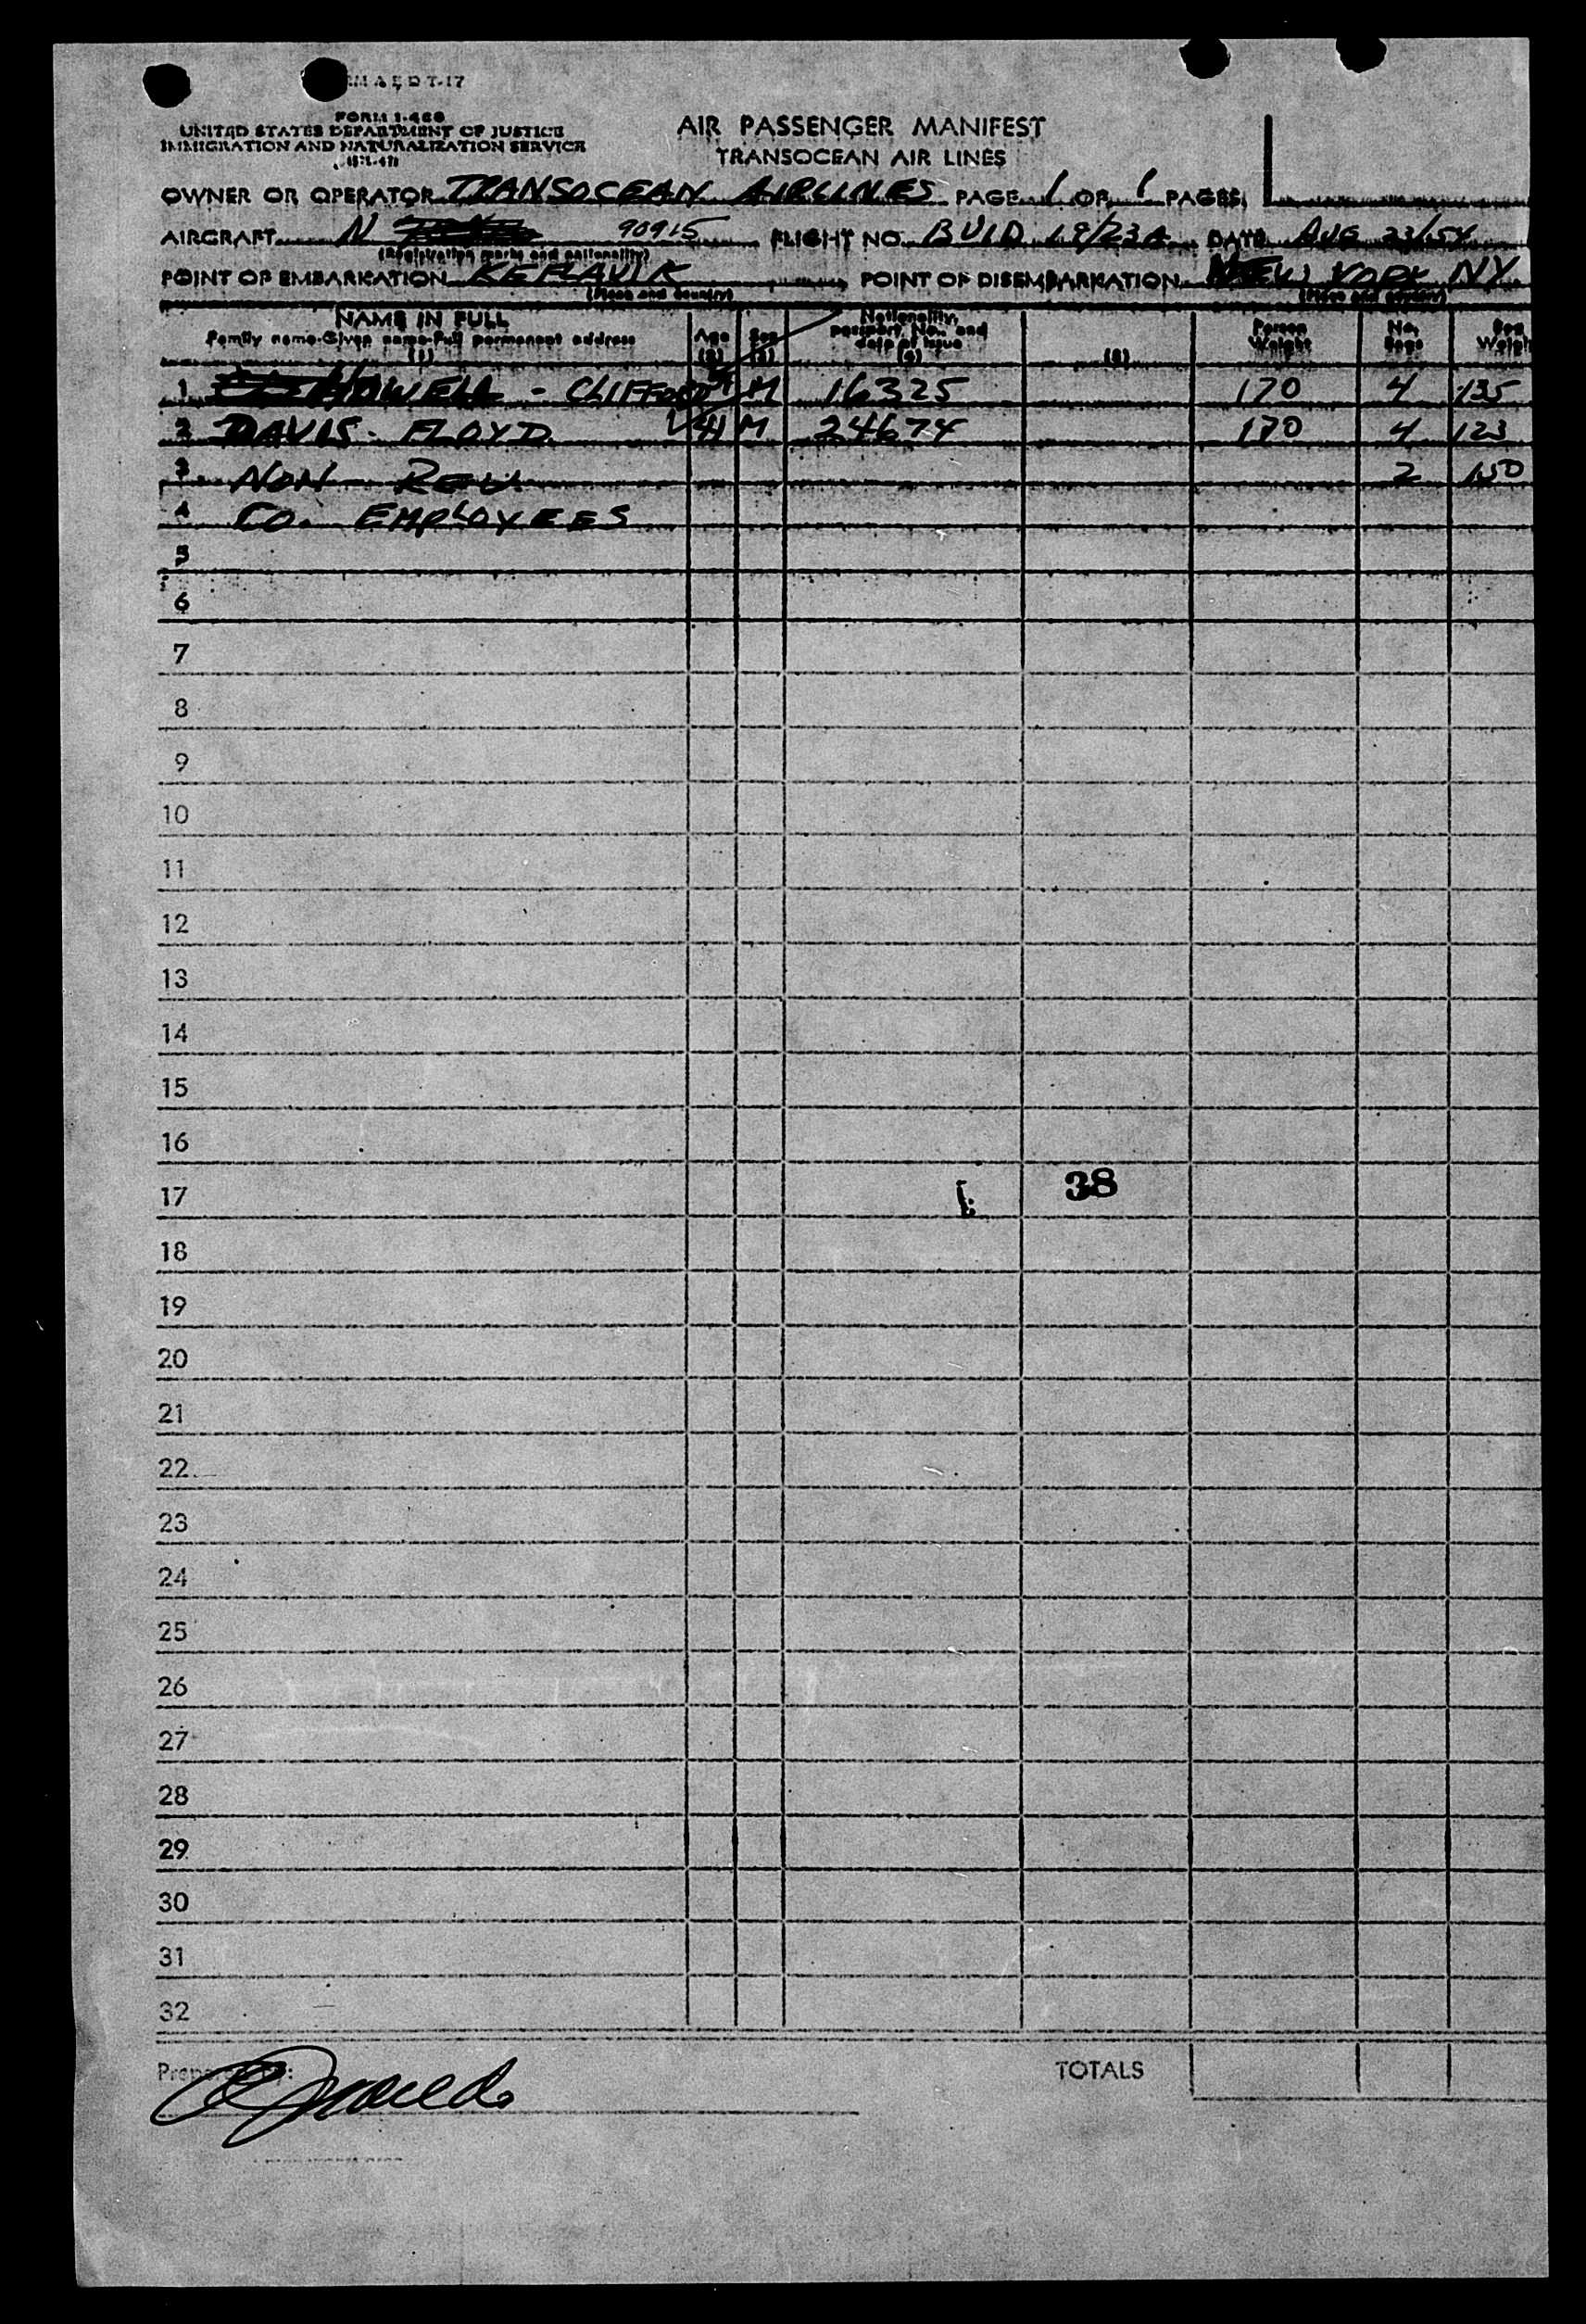 FORM I-466
UNITED STATES DEPARTMENT OF JUSTICE
IMMIGRATION AND NATURALIZATION SERVICE
AIR PASSENGER MANIFEST
TRANSOCEAN AIR LINES
OWNER OR OPERATOR TRANSOCEAN AIRLINES PAGE 1 OF 1 PAGES
AIRCRAFT N 90915 FLIGHT NO. DATE AUG 23/54
(Registration marks and nationality)
POINT OF EMBARKATION KEFLAVIK POINT OF DISEMBARKATION NEW YORK NY.
(Place and country) (Place and country)
NAME IN FULL Nationality, Person No. Bag
Family name-Given name-Full permanent address Age Sex passport No. and Weight Bags Weigh
date of issue
(1) (2) (3) (4)
1 HOWELL - CLIFFORD M 16325 170 4 135
2 DAVIS - FLOYD 41 M 24674 170 4 123
3 NON REV. 2 150
4 CO. EMPLOYEES
5
6
7
8
9
10
11
12
13
14
15
16
17 38
18
19
20
21
22
23
24
25
26
27
28
29
30
31
32
Prepared by: TOTALS